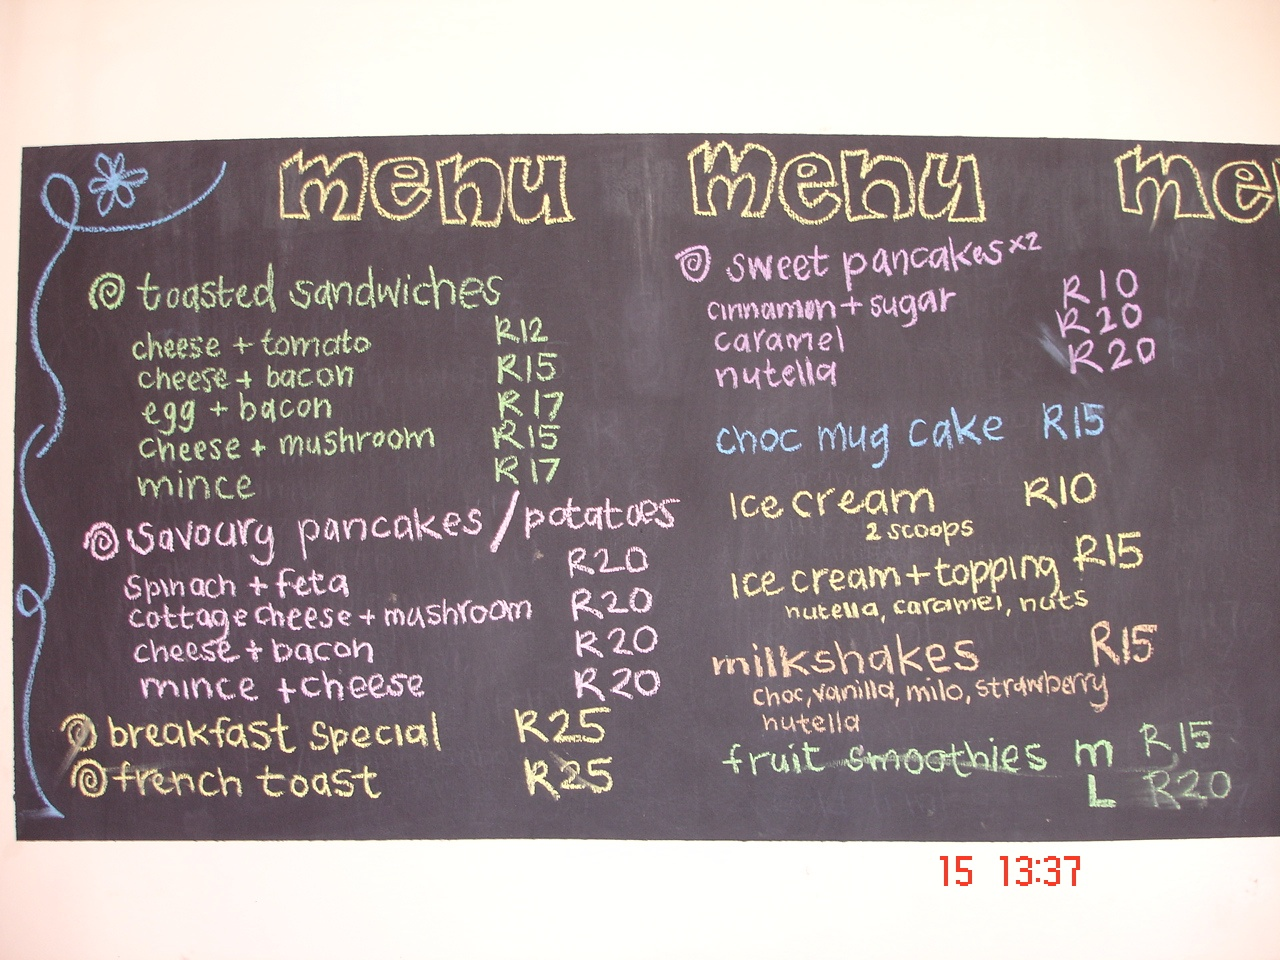 menu
toasted sandwiches
cheese + tomato R12
cheese + bacon R15
egg + bacon R17
cheese + mushroom R15
mince R17
savoury pancakes / potatoes
spinach + feta R20
cottage cheese + mushroom R20
cheese + bacon R20
mince + cheese R20
breakfast special R25
french toast R25
menu
sweet pancakes x2
cinnamon + sugar R10
caramel R20
nutella R20
choc mug cake R15
Ice cream R10
2 scoops
Ice cream + topping R15
nutella, caramel, nuts
milkshakes R15
choc, vanilla, milo, strawberry
nutella
fruit smoothies m R15
L R20
me
15 13:37